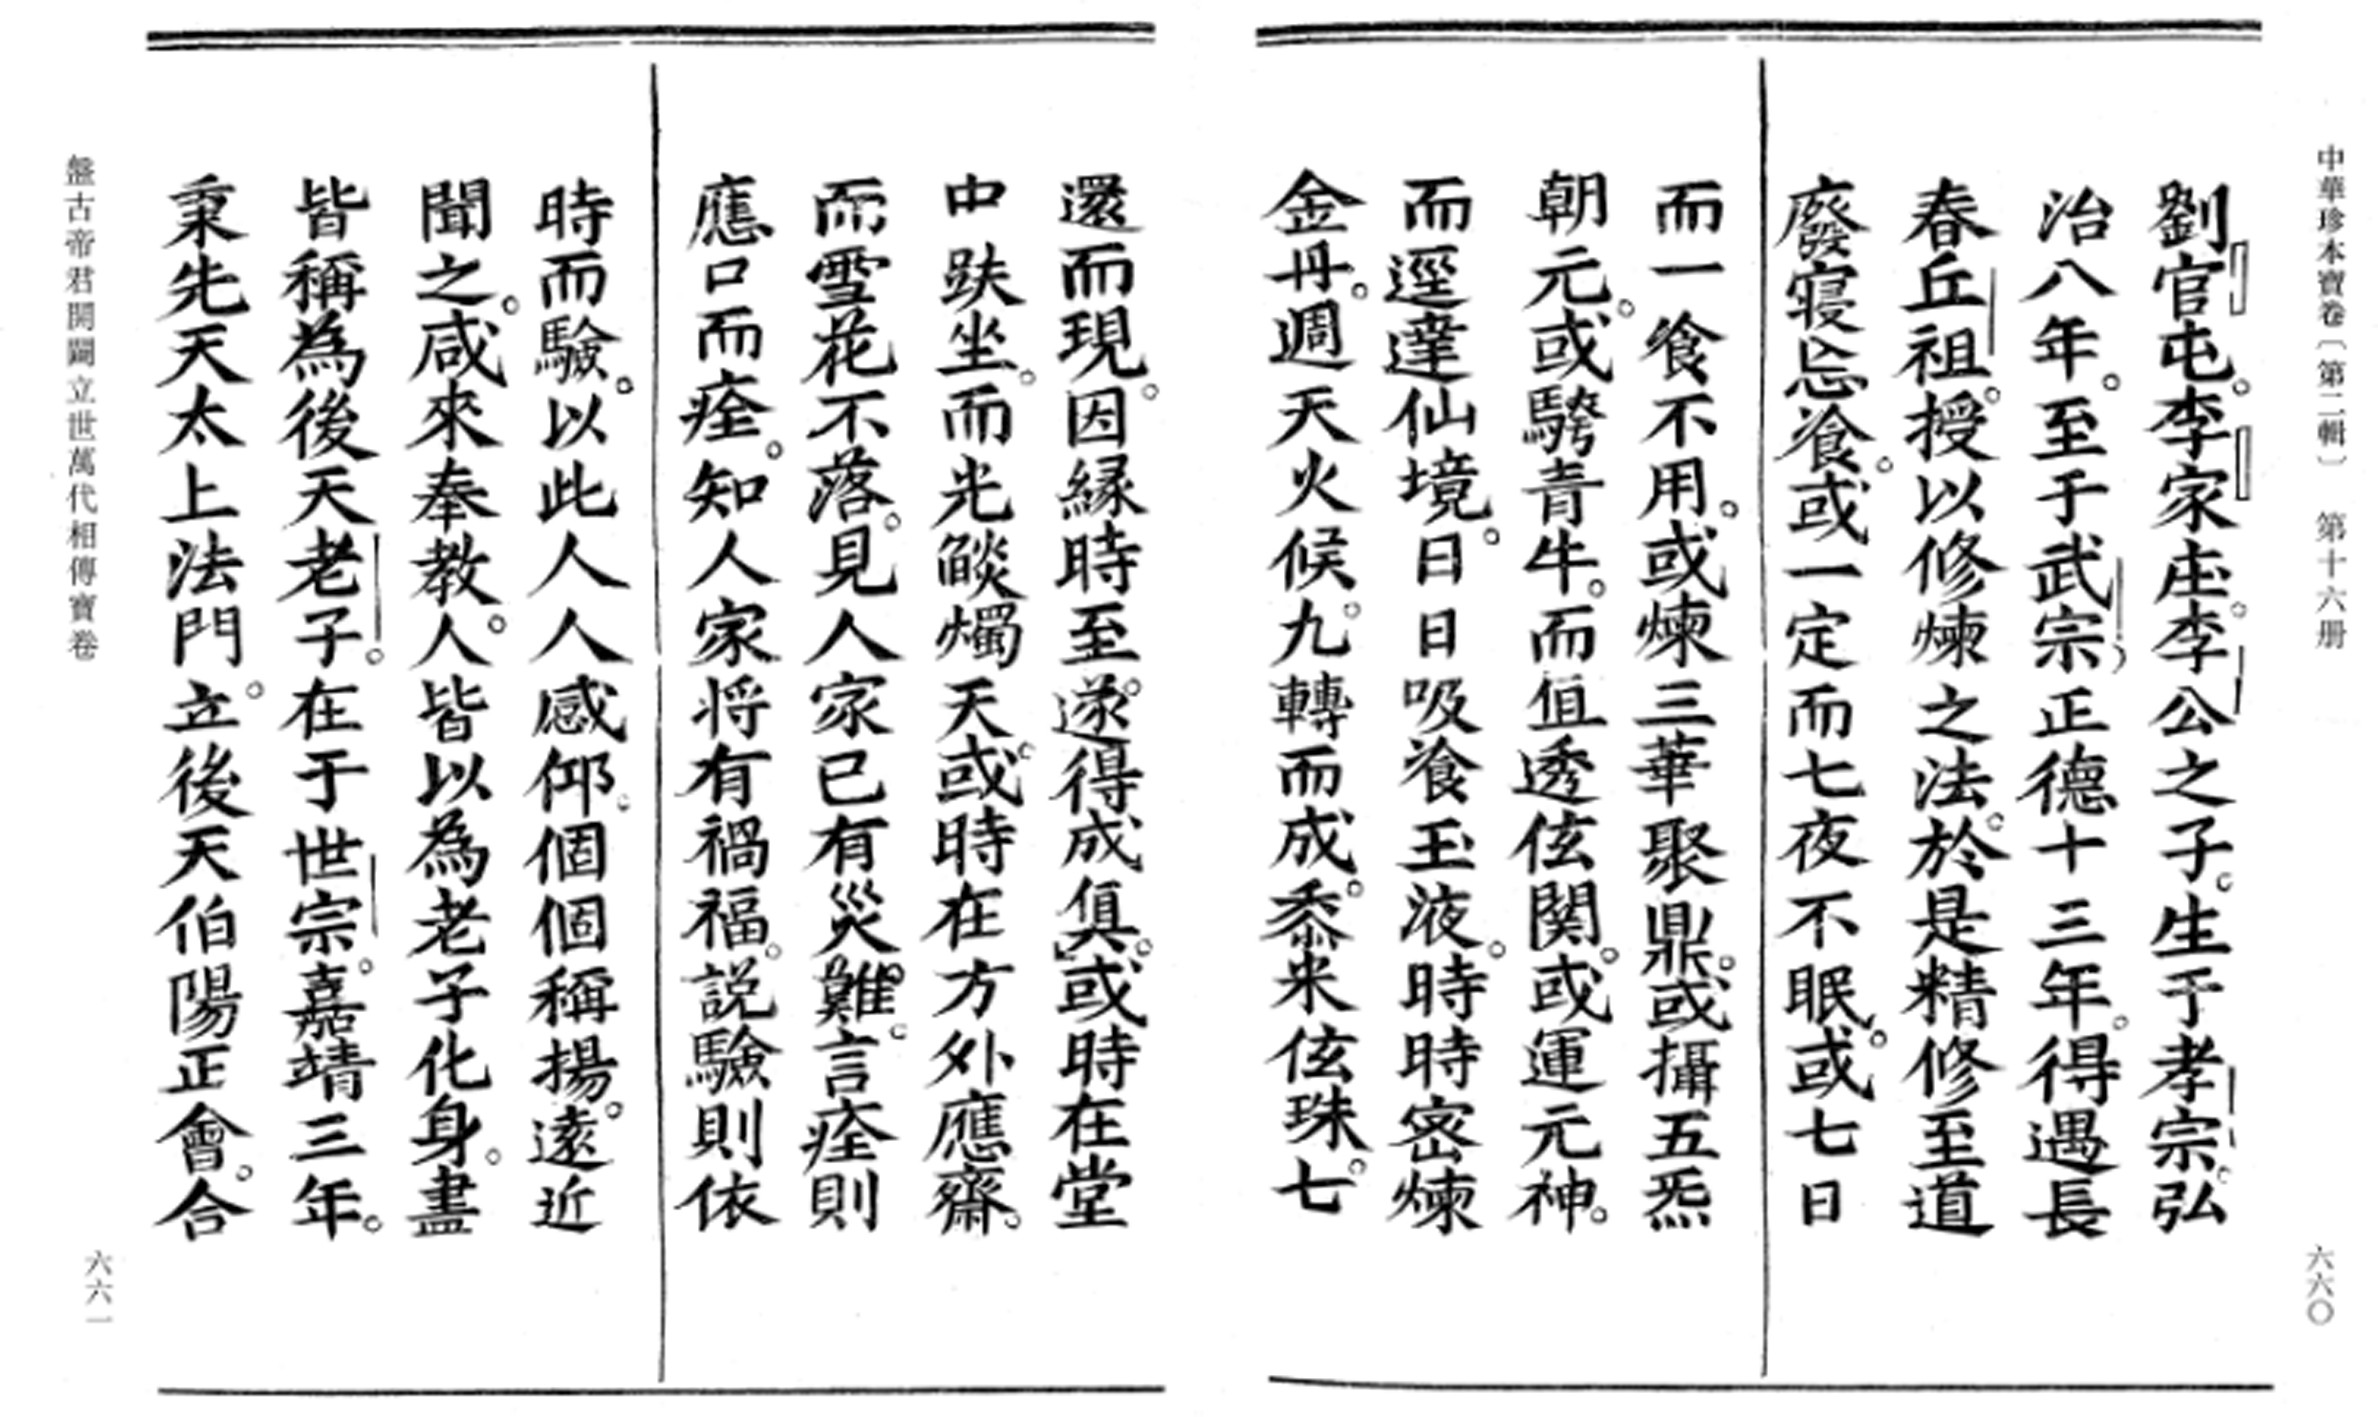 中華珍本寶卷〔第二輯〕　第十六册
劉官屯。李家庄。李公之子。生于孝宗。弘
治八年。至于武宗正德十三年。得遇長
春丘祖。授以修煉之法。於是精修至道
廢寢忘飡。或一定而七夜不眠。或七日
而一飡不用。或煉三華聚鼎。或攝五炁
朝元。或騎青牛。而值透伭関。或運元神。
而逕達仙境。日日吸飡玉液。時時密煉
金丹。週天火候。九轉而成。黍米伭珠。七
六六〇
還而現。因緣時至。遂得成真。或時在堂
中趺坐。而光燄燭天。或時在方外應齋。
而雪花不落。見人家已有災難。言痊則
應口而痊。知人家将有禍福。説驗則依
時而驗。以此人人感仰。個個稱揚。遠近
聞之。咸來奉教。人皆以為老子化身。盡
皆稱為後天老子。在于世宗。嘉靖三年。
秉先天太上法門。立後天伯陽正會。合
盤古帝君開闢立世萬代相傳寶卷
六六一